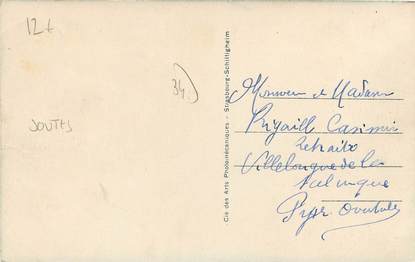 12+
34.
JOUTES
Cie des Arts Photomécaniques - Strasbourg-Schiltigheim
Monsieur et Madame
Casimir
retraité
Villelongue de la
Salanque
Pyr. Orientales